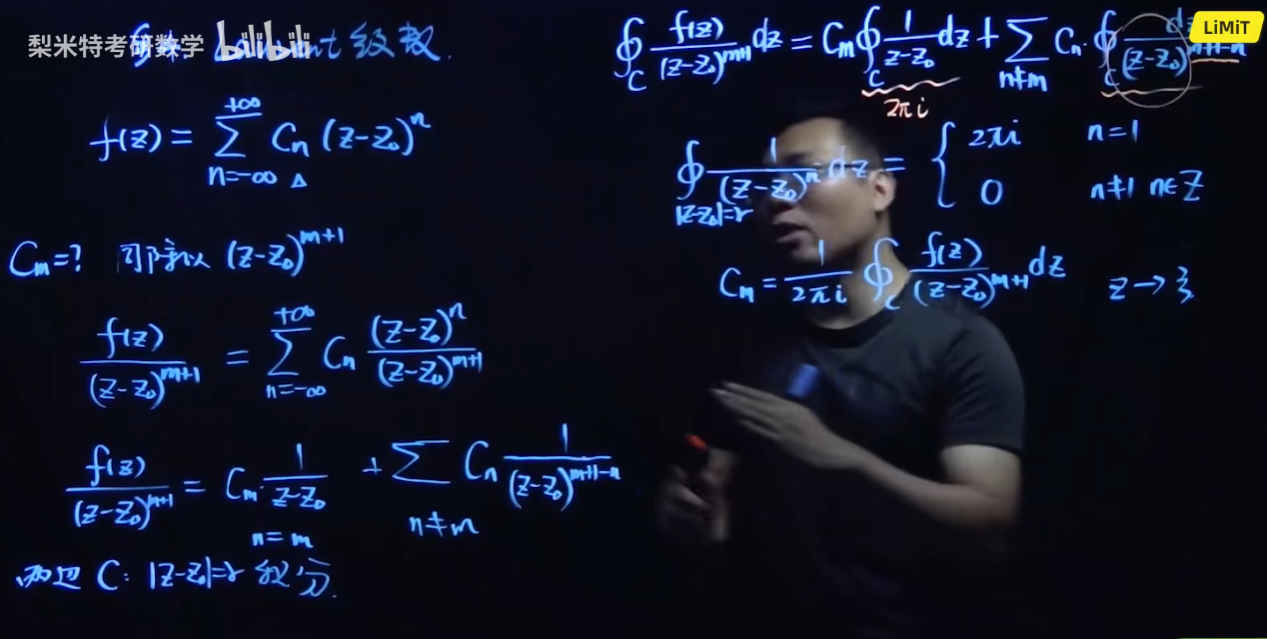 梨米特考研数学 bilibili
Laurent级数.
f(z) = \sum_{n=-∞}^{+∞} C_n (z-z_0)^n
C_m=? 同除以 (z-z_0)^{m+1}
\frac{f(z)}{(z-z_0)^{m+1}} = \sum_{n=-∞}^{+∞} C_n \frac{(z-z_0)^n}{(z-z_0)^{m+1}}
\frac{f(z)}{(z-z_0)^{m+1}} = C_m · \frac{1}{z-z_0} + \sum_{n≠m} C_n \frac{1}{(z-z_0)^{m+1-n}}
n=m
两边 C: |z-z_0|=r 积分.
LiMiT
\oint_C \frac{f(z)}{(z-z_0)^{m+1}} dz = C_m \oint_C \frac{1}{z-z_0} dz + \sum_{n≠m} C_n · \oint_C \frac{dz}{(z-z_0)^{m+1-n}}
2πi
\oint_{|z-z_0|=r} \frac{1}{(z-z_0)^n} dz = { 2πi n=1
0 n≠1 n∈Z
C_m = \frac{1}{2πi} \oint_C \frac{f(z)}{(z-z_0)^{m+1}} dz z→ξ